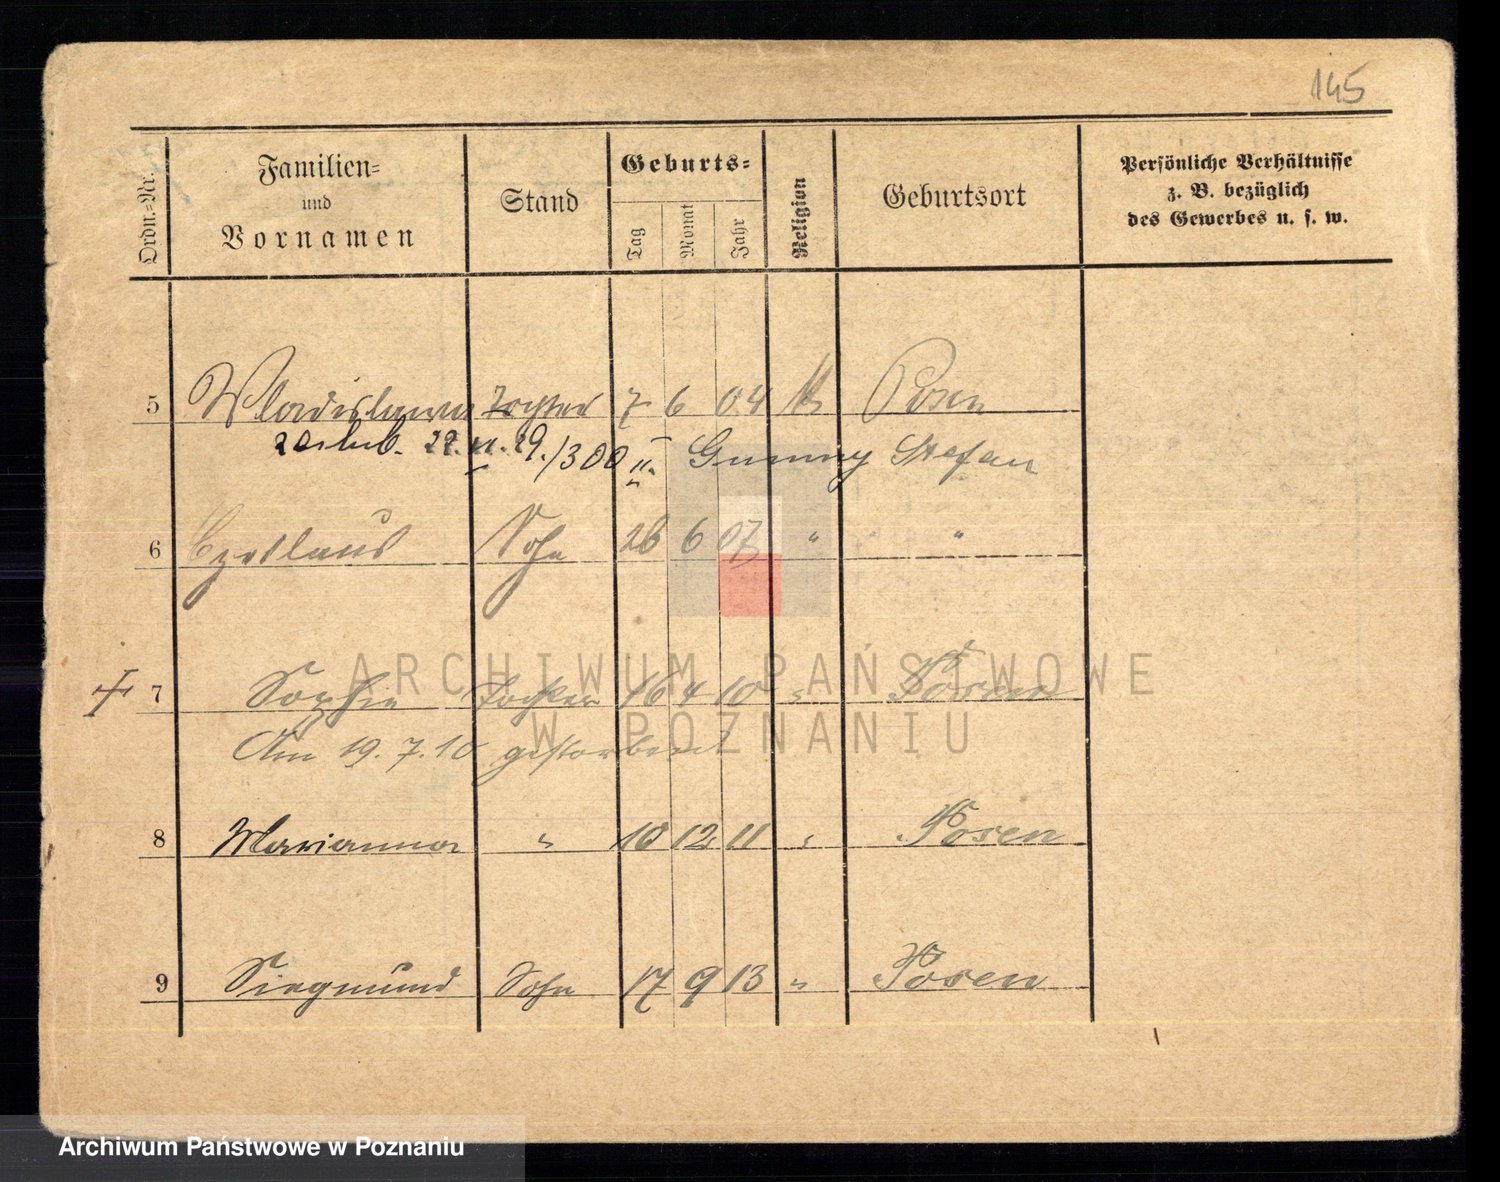 145
Ordn.-Nr. Familien= und Vornamen Stand Geburts= Tag Monat Jahr Religion Geburtsort Persönliche Verhältnisse z. B. bezüglich des Gewerbes u. s. w.
5 Wladislawa Tochter 7 6 04 k Posen
29. /300 Stefan
6 Sohn 26 6 07 " "
7 Sophie Tochter 16 4 10 " Posen
Am 19.7.10 gestorben
8 Marianna " 10 12 11 " Posen
9 Siegmund Sohn 17 9 13 " Posen
ARCHIWUM PAŃSTWOWE
W POZNANIU
Archiwum Państwowe w Poznaniu